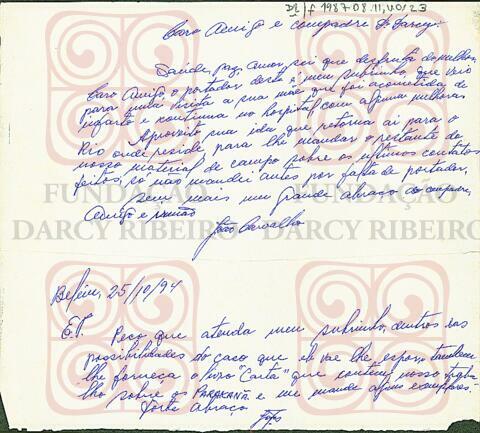 DR/f 1987.08.11, VO/23
Caro Amigo e compadre Dr. Darcy:
Saúde, paz, Amor, sei que desfruta do melhor.
Caro Amigo o portador desta é meu sobrinho, que veio
para uma visita a sua mãe que foi acometida de
infarto e continua no hospital com alguma melhoras
Aproveito sua ida que retorna ai para o
Rio onde reside para lhe mandar o restante do
nosso material de campo sobre os ultimos contatos
feitos, só não mandei antes por falta de portador.
Sem mais um grande abraço do compadre,
Amigo e irmão
João Carvalho
FUNDAÇÃO FUNDAÇÃO
DARCY RIBEIRO DARCY RIBEIRO
Belém, 25/10/94
E.T. Peço que atenda meu sobrinho, dentro das
possibilidades do caso que ele vae lhe espor, tambem
lhe forneça o livro "Carta" que contem nosso traba
lho sobre os PARAKANÃ e me mande alguns exemplares.
Forte Abraço